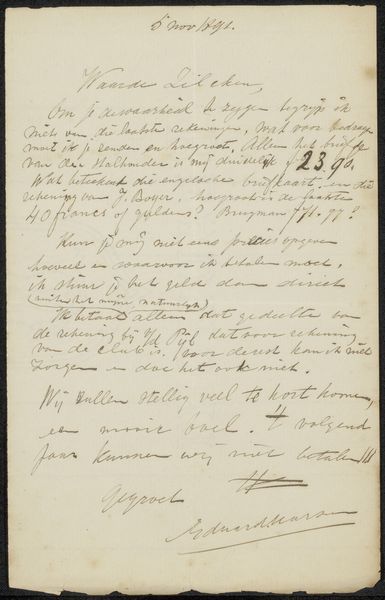 5 nov 1891.
Waarde Zilcken,
Om je de waarheid te zeggen begrijp ik
niets van die laatste rekeningen, wat voor bedrag
moet ik je zenden en hoegroot. Alleen het briefje
van den Stalhouder is mij duidelijk f 23.90.
Wat beteekent die engelsche briefkaart, en die
rekening van J. Boyer, hoegroot is de laatste
40 francs of guldens? Brugman
Kun je mij niet eens precies opgeven
hoeveel en waarvoor ik betalen moet,
ik stuur je het geld dan direct
(buiten het mijne, natuurlijk)
Ik betaal alleen dat gedeelte van
de rekening bij v/d Pijl dat voor rekening
van de club is. Voor de rest kan ik niet
zorgen en doe het ook niet.
Wij zullen stellig veel te kort komen,
een mooie boel. 't volgend
jaar kunnen wij niet betalen !!!
Gegroet